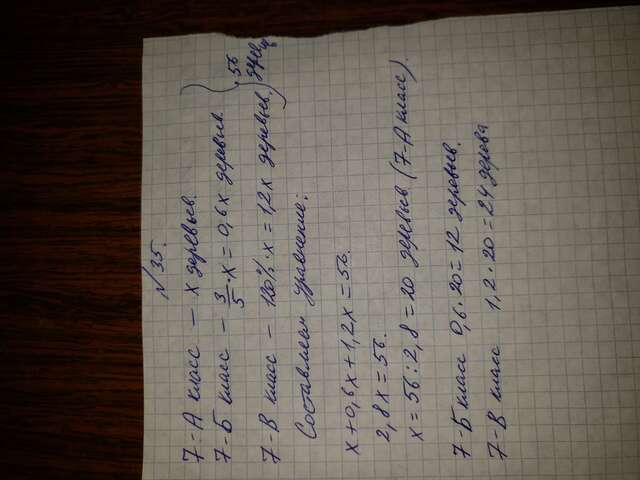 № 35.
7-А класс – х деревьев.
7-Б класс – 3/5 · х = 0,6х деревьев.
7-В класс – 120% · х = 1,2х деревьев.
56 дерев
Составляем уравнение:
х + 0,6х + 1,2х = 56.
2,8х = 56.
х = 56 : 2,8 = 20 деревьев (7-А класс).
7-Б класс 0,6 · 20 = 12 деревьев.
7-В класс 1,2 · 20 = 24 дерева